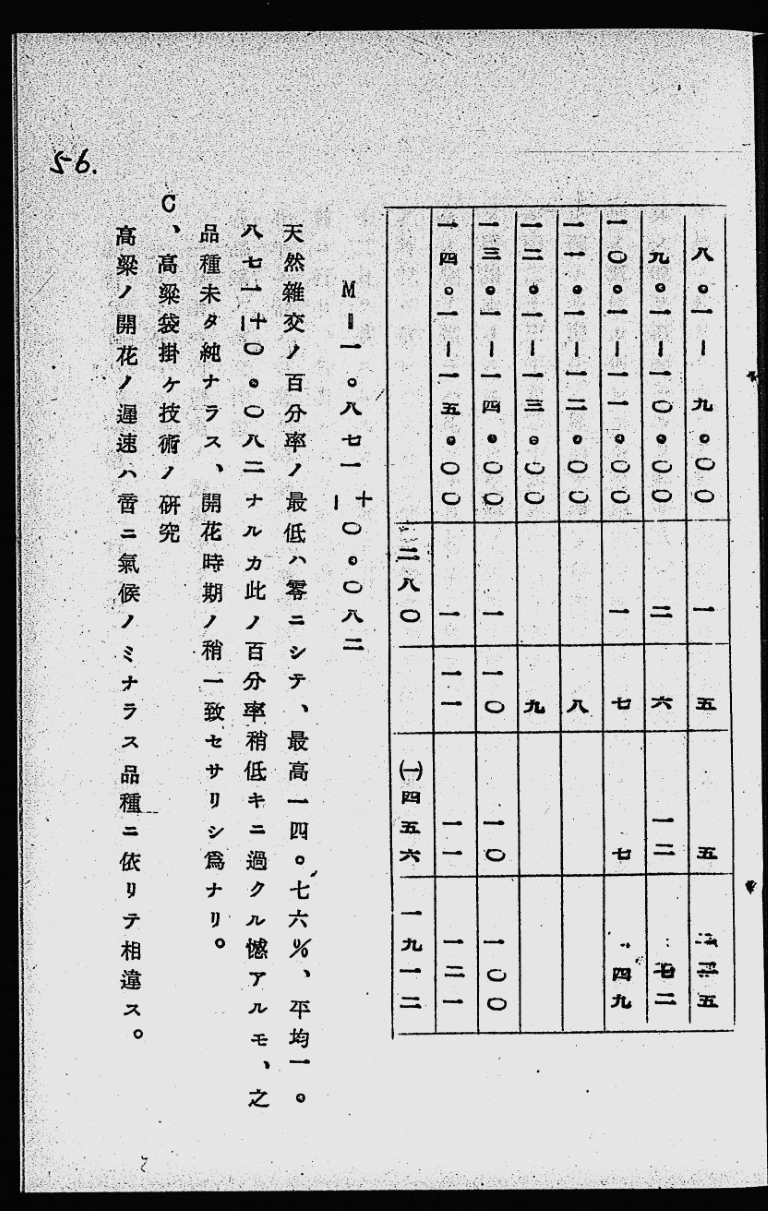 八。一－九。〇〇 一 五 五 二五
九。一－一〇。〇〇 二 六 一二 七二
一〇。一－一一。〇〇 一 七 七 四九
一一。一－一二。〇〇 八
一二。一－一三。〇〇 九
一三。一－一四。〇〇 一 一〇 一〇 一〇〇
一四。一－一五。〇〇 一 一一 一一 一二一
二八〇 (一)四五六 一九一二
M＝一。八七一±〇。〇八二
天然雜交ノ百分率ノ最低ハ零ニシテ、最高一四。七六%、平均一。
八七一±〇。〇八二ナルカ此ノ百分率稍低キニ過クル憾アルモ、之
品種未タ純ナラス、開花時期ノ稍一致セサリシ爲ナリ。
C、高粱袋掛ケ技術ノ硏究
高粱ノ開花ノ遲速ハ啻ニ氣候ノミナラス品種ニ依リテ相違ス。
56.